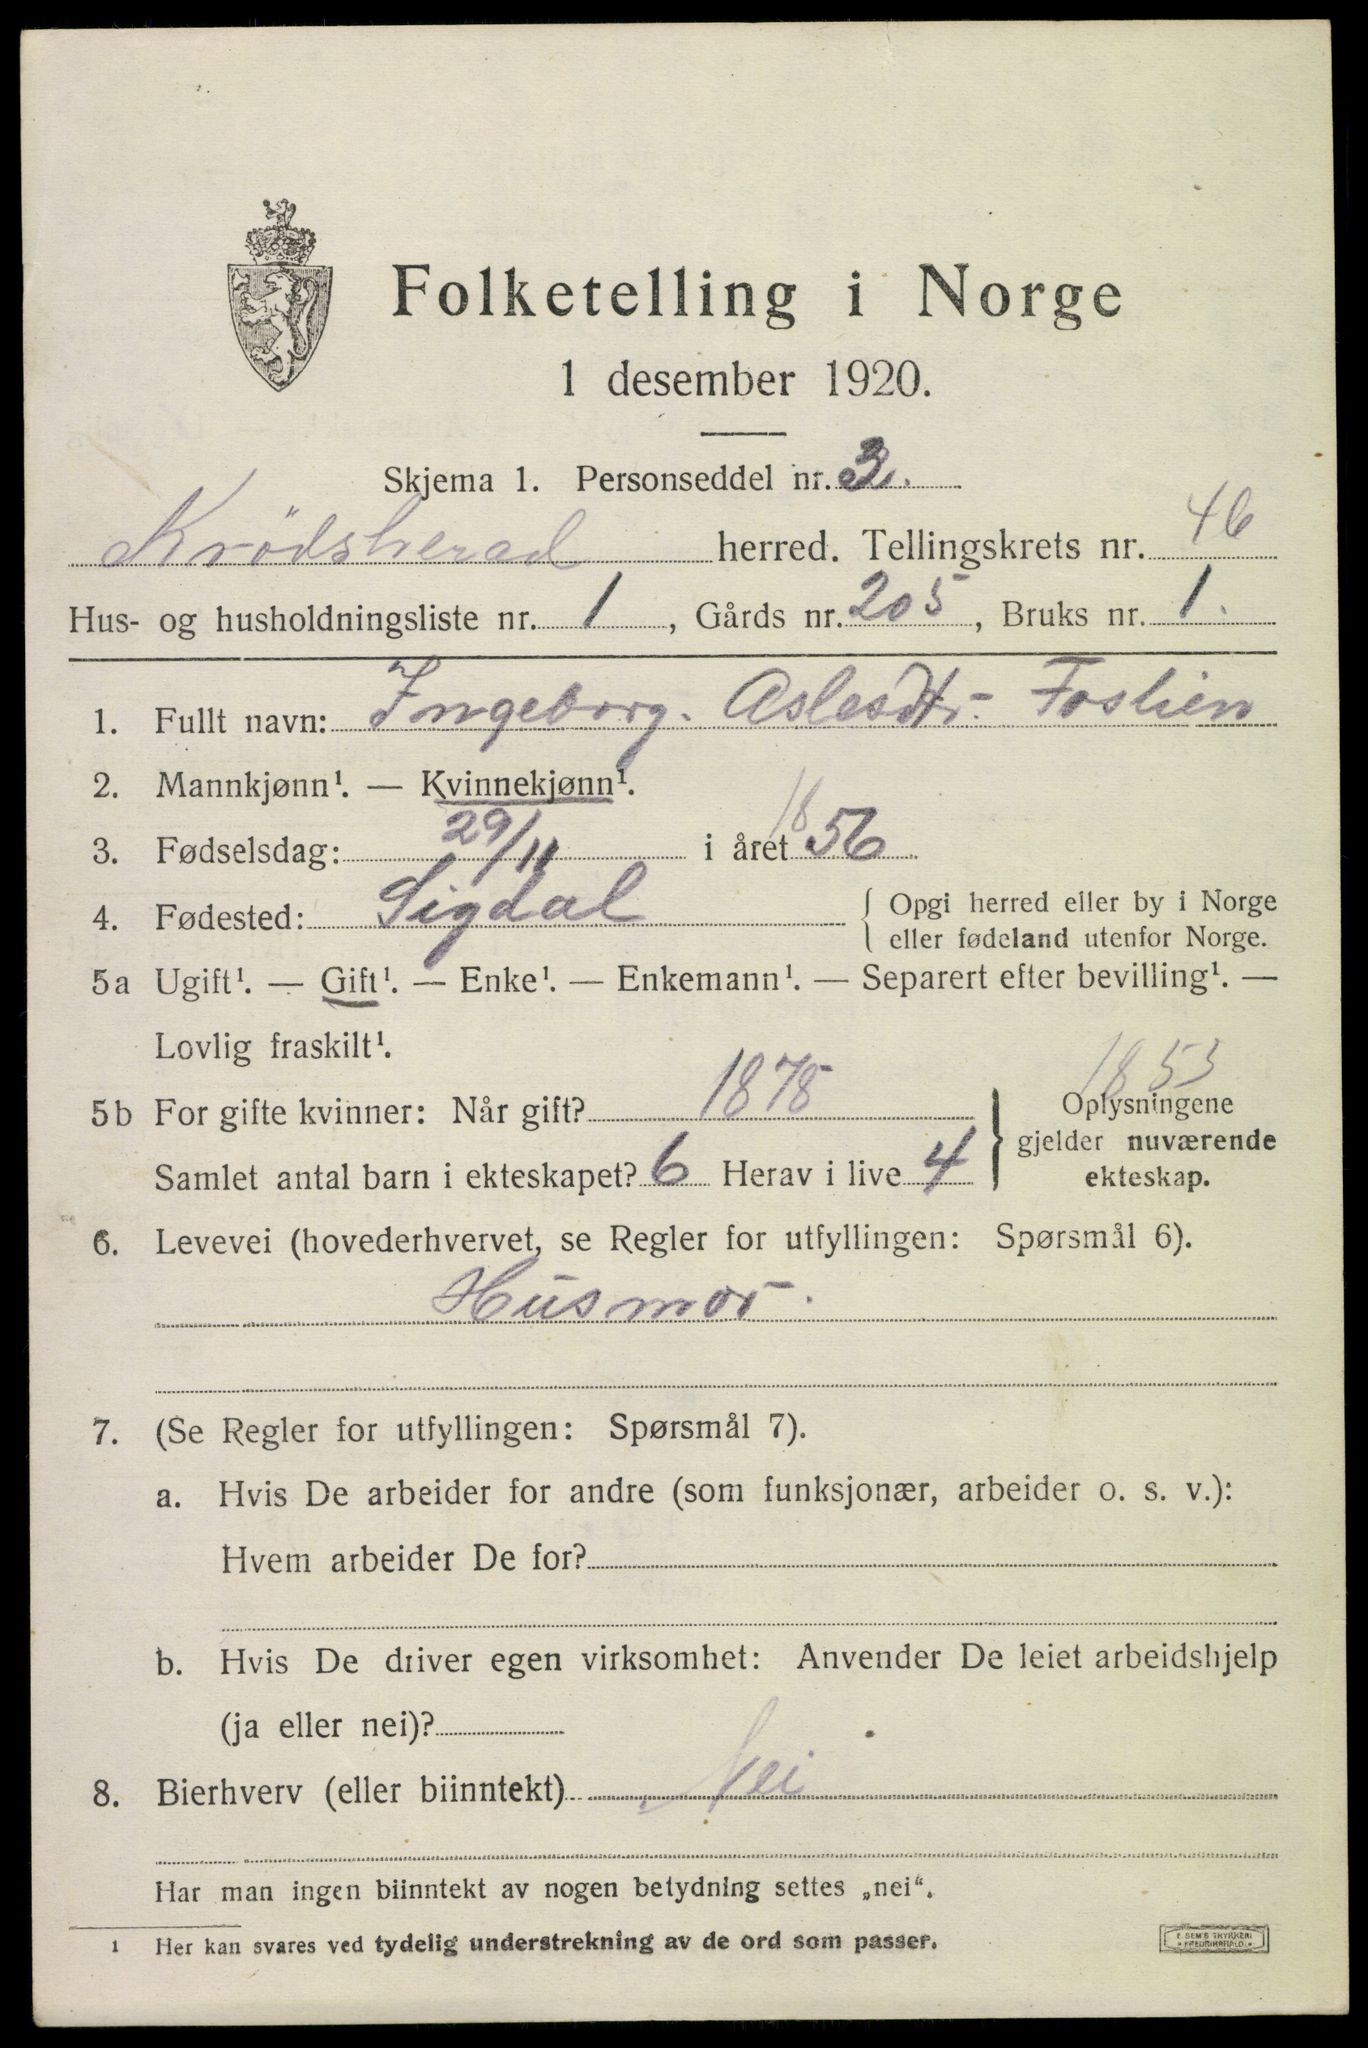 Folketelling i Norge
1 desember 1920.
Skjema 1. Personseddel nr. 3.
Krödsherad herred. Tellingskrets nr. 46
Hus- og husholdningsliste nr. 1, Gårds nr. 205, Bruks nr. 1.
1. Fullt navn: Ingeborg. Aslesdtr. Foslien
2. Mannkjønn¹. — Kvinnekjønn¹.
3. Fødselsdag: 29/11 i året 1856
4. Fødested: Sigdal { Opgi herred eller by i Norge
eller fødeland utenfor Norge.
5a Ugift¹. — Gift¹. — Enke¹. — Enkemann¹. — Separert efter bevilling¹. —
Lovlig fraskilt¹.
1853
5b For gifte kvinner: Når gift? 1878
Samlet antal barn i ekteskapet? 6 Herav i live 4
} Oplysningene
gjelder nuværende
ekteskap.
6. Levevei (hovederhvervet, se Regler for utfyllingen: Spørsmål 6).
Husmor.
7. (Se Regler for utfyllingen: Spørsmål 7).
a. Hvis De arbeider for andre (som funksjonær, arbeider o. s. v.):
Hvem arbeider De for?
b. Hvis De driver egen virksomhet: Anvender De leiet arbeidshjelp
(ja eller nei)?
8. Bierhverv (eller biinntekt) Nei
Har man ingen biinntekt av nogen betydning settes „nei“.
1 Her kan svares ved tydelig understrekning av de ord som passer.
E. SEM'S TRYKKERI
FREDRIKSHALD